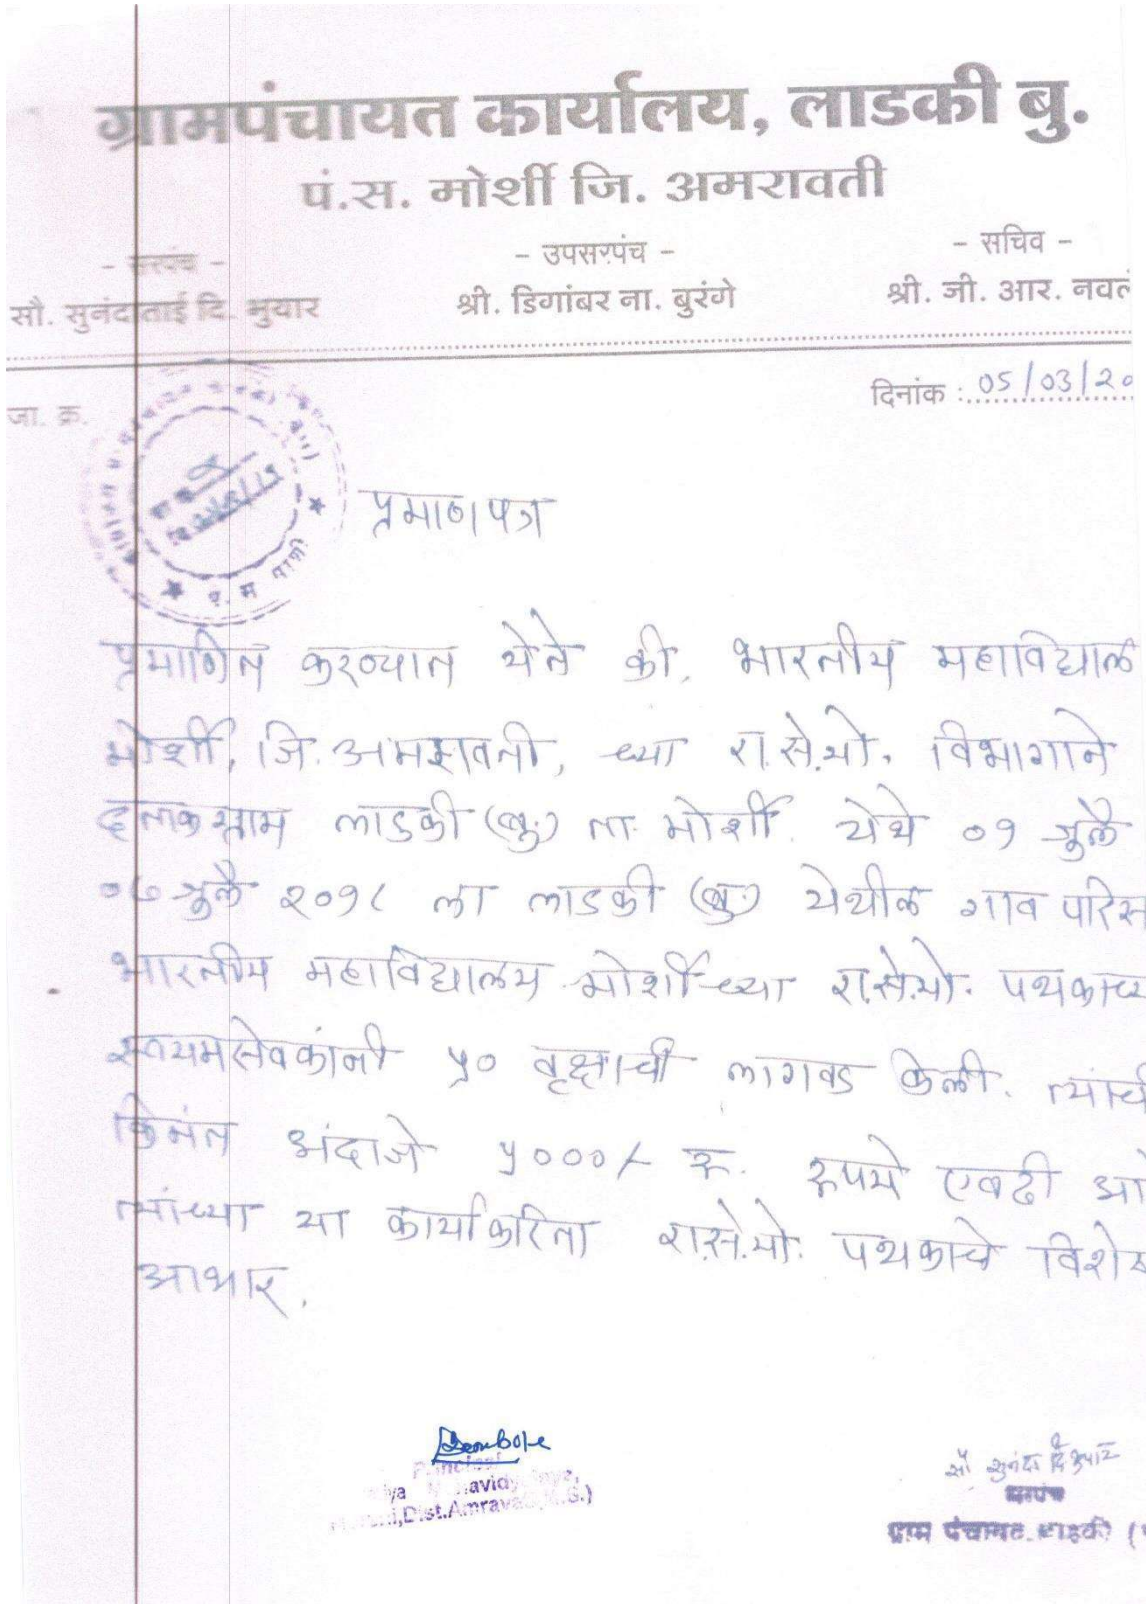 ग्रामपंचायत कार्यालय, लाडकी बु.
पं.स. मोर्शी जि. अमरावती
- सरपंच - - उपसरपंच - - सचिव -
सौ. सुनंदाताई दि. भुयार श्री. डिगांबर ना. बुरंगे श्री. जी. आर. नवले
जा. क्र. दिनांक : 05/03/20
प्रमाणपत्र
प्रमाणित करण्यात येते की, भारतीय महाविद्याल
मोर्शी, जि. अमरावती, च्या रा.से.यो. विभागाने
दत्तकग्राम लाडकी (बु.) ता. मोर्शी. येथे ०१ जुलै
०७ जुलै २०१८ ला लाडकी (बु.) येथील गाव परिस
भारतीय महाविद्यालय मोर्शीच्या रा.से.यो. पथकाच्य
स्वयमसेवकांनी ५० वृक्षाची लागवड केली. त्यांची
किंमत अंदाजे ५०००/- रु. रुपये एवढी आ
त्यांच्या या कार्याकरिता रा.से.यो. पथकाचे विशेष
आभार.
Principal
Dist.Amravati
सौ सुनंदा दि भुयार
सरपंच
ग्राम पंचायत लाडकी (